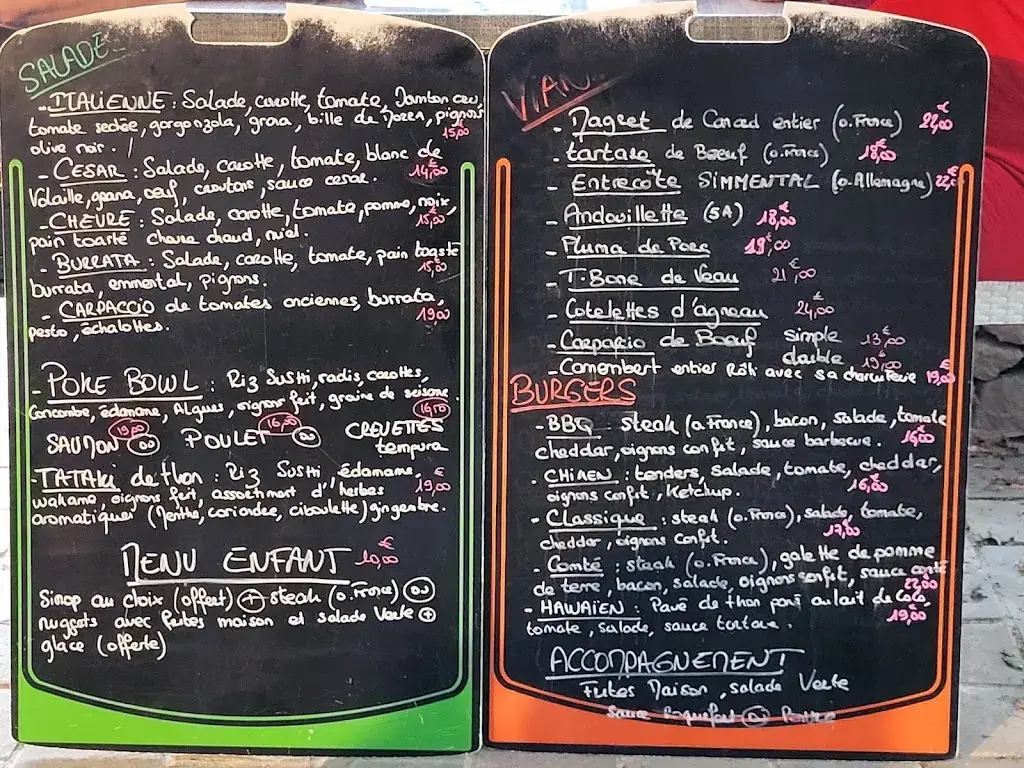 SALADE
- ITALIENNE : Salade, carotte, tomate, Jambon cru,
tomate sechée, gorgonzola, grana, bille de Mozza, pignons
15,00
olive noir. /
- CESAR : Salade, carotte, tomate, blanc de
14,00 €
Volaille, grana, oeuf, croutons, sauce cesar.
- CHEVRE : Salade, carotte, tomate, pomme, noix,
15,00
pain toasté chevre chaud, miel.
- BURRATA : Salade, carotte, tomate, pain toasté
15,00
burrata, emmental, pignons.
- CARPACCIO de tomates anciennes, burrata,
19,00
pesto, échalottes.
- POKE BOWL : Riz Sushi, radis, carottes,
Concombe, édamame, Algues, oignons frit, graine de sesame.
19,00 16,00 16,50
SAUMON OU POULET OU CREVETTES
tempura
- TATAKI de thon : Riz Sushi édamame,
19,00 €
wakame oignons frit, assortiment d'herbes
aromatiques (Menthe, coriandre, ciboulette) gingembre.
MENU ENFANT 10,00 €
Sirop au choix (offert) + steak (o.France) OU
nuggets avec frites maison et salade Verte +
glace (offerte)
VIAN
- Magret de Canard entier (o.France) 22,00 €
- tartare de Boeuf (o.France) 18,00 €
- Entrecôte SIMMENTAL (o.Allemagne) 22,00
- Andouillette (5A) 18,00 €
- Pluma de Porc 19,00 €
- T.Bone de Veau 21,00 €
- Cotelettes d'agneau 24,00 €
- Carpaccio de Boeuf simple 13,00 €
double 19,00 €
- Camembert entier Rôti avec sa charcuterie 19,00 €
BURGERS
- BBQ : steak (o.France), bacon, salade, tomate
cheddar, oignons confit, sauce barbecue. 16,00
- CHIKEN : tenders, salade, tomate, cheddar,
oignons confit, Ketchup. 16,00 €
- Classique : steak (o.France), salade, tomate,
cheddar, oignons confit. 17,00 €
- Comté : steak (o.France), galette de pomme
de terre, bacon, salade, oignons confit, sauce comté
22,00
- HAWAÏEN : Pavé de thon pané au lait de Coco,
tomate, salade, sauce tartare. 19,00 €
ACCOMPAGNEMENT
Frites Maison, salade Verte
Sauce Roquefort OU Poivre